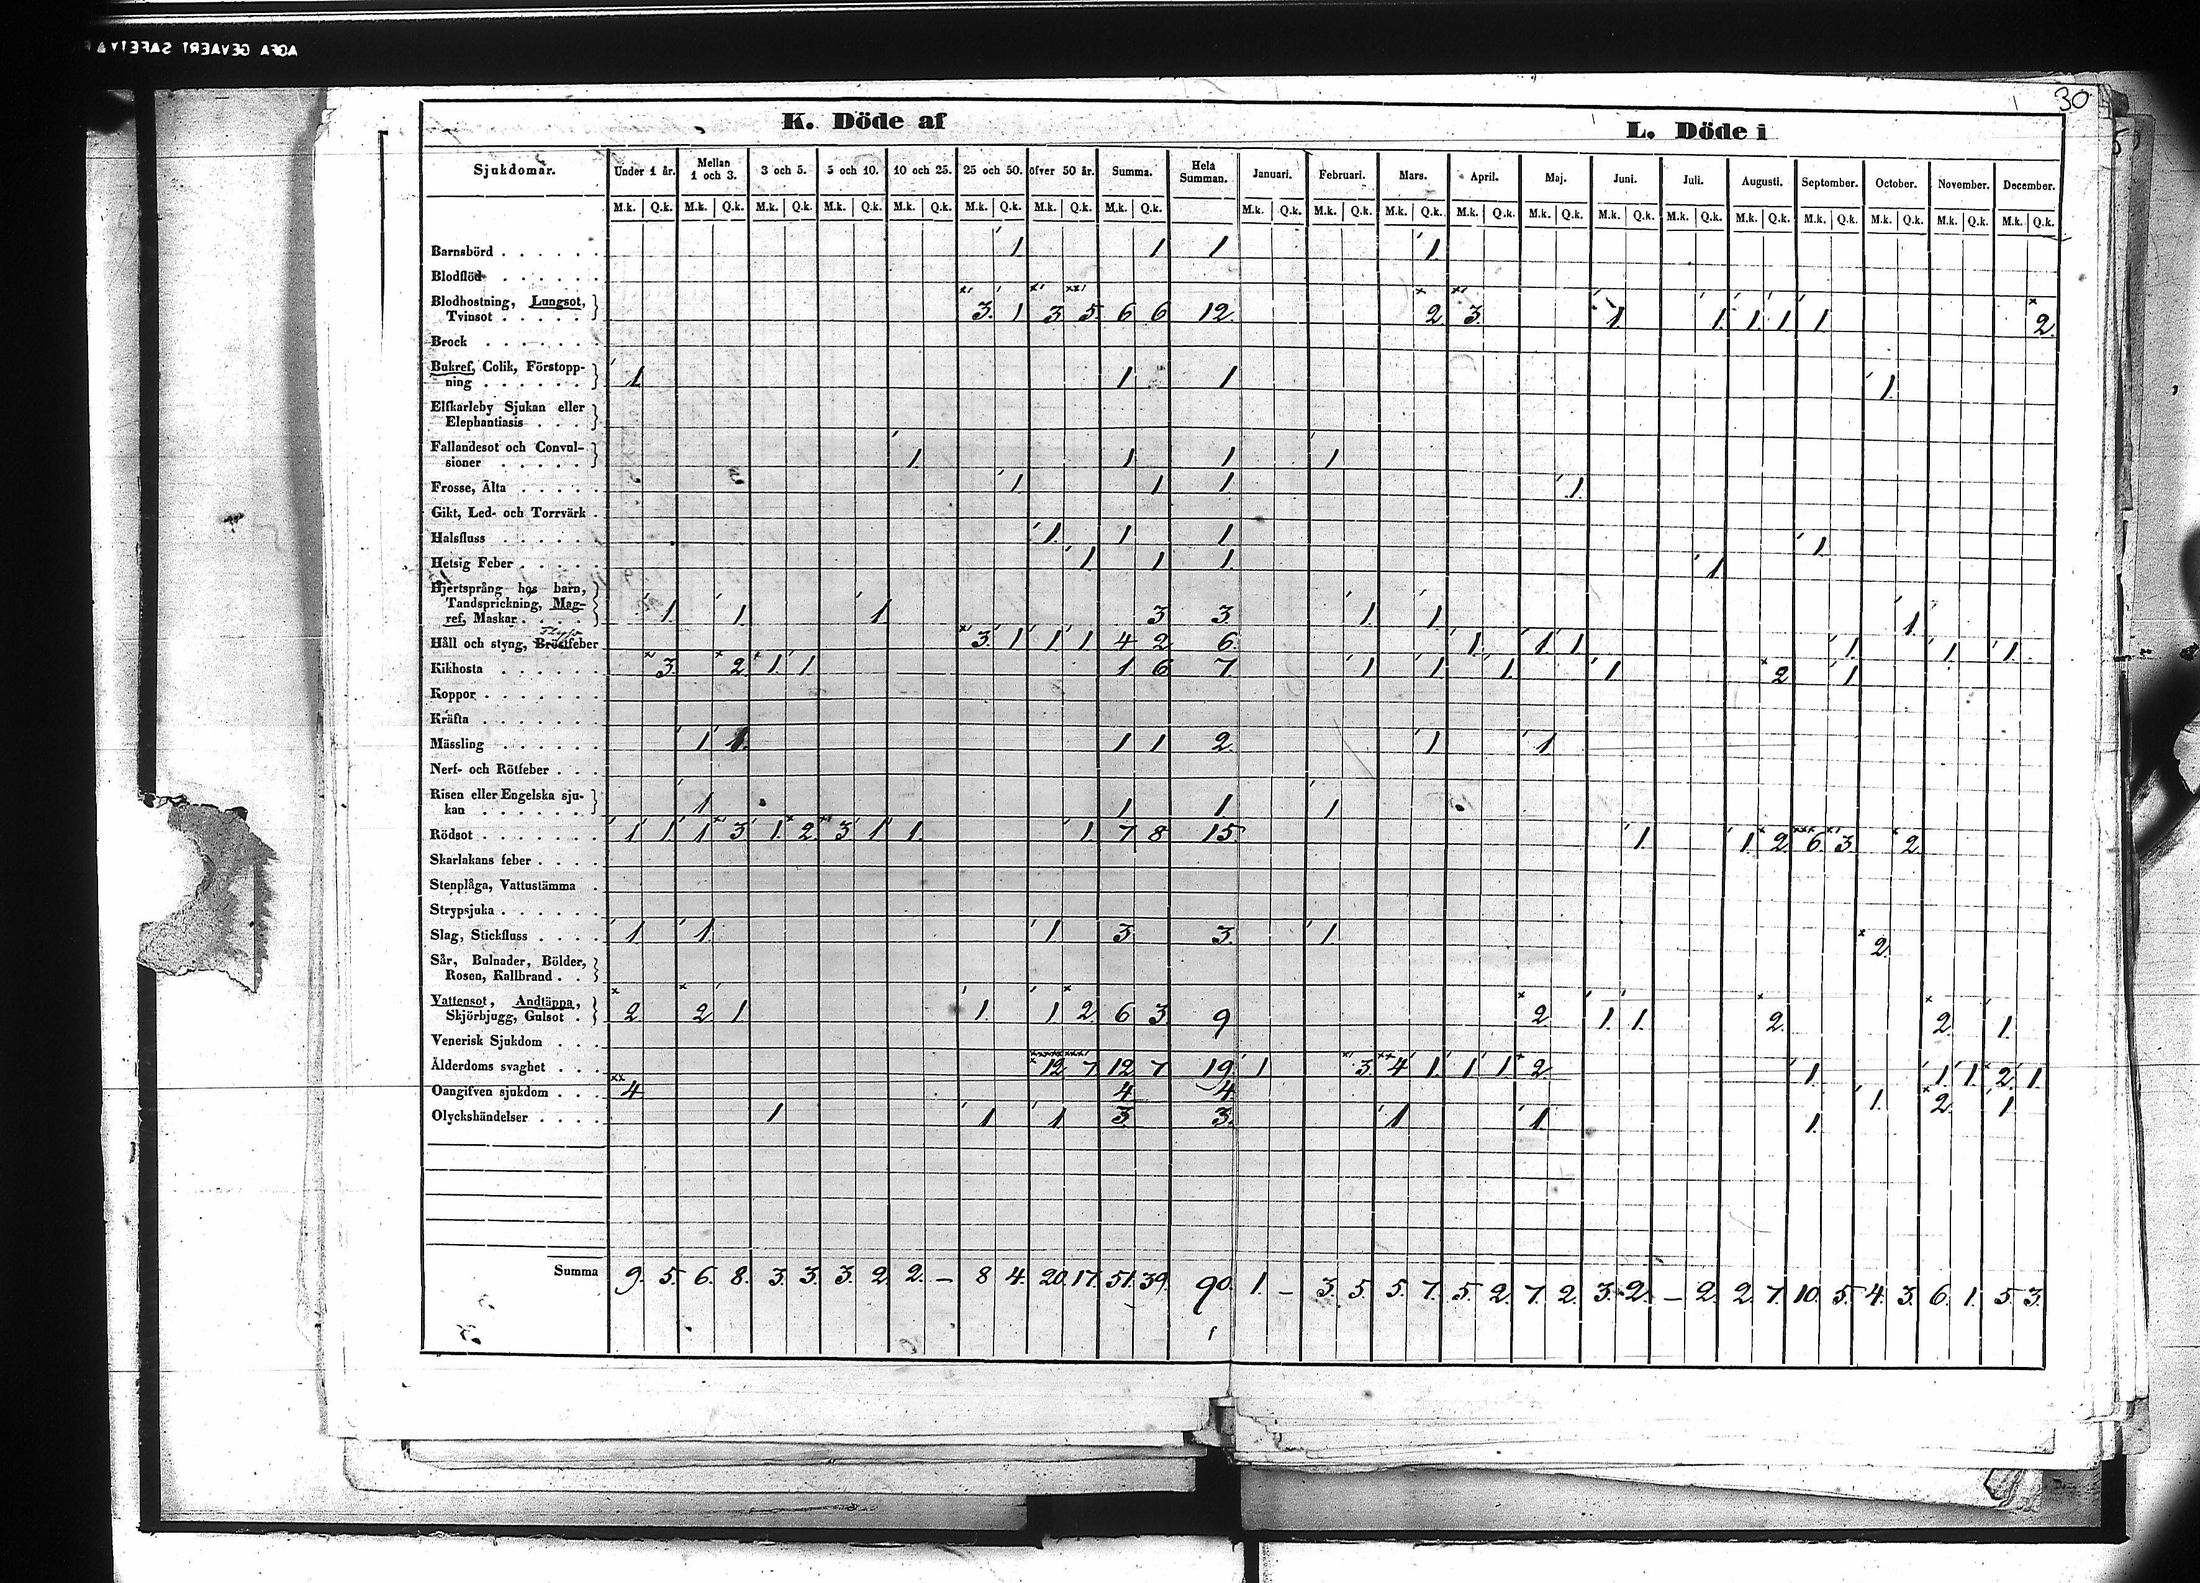 AGFA GEVAERT SAFETY
30
K. Döde af
L. Döde i
Sjukdomar. Under 1 år. Mellan 1 och 3. 3 och 5. 5 och 10. 10 och 25. 25 och 50. öfver 50 år. Summa. Hela Summan. Januari. Februari. Mars. April. Maj. Juni. Juli. Augusti. September. October. November. December.
M.k. Q.k. M.k. Q.k. M.k. Q.k. M.k. Q.k. M.k. Q.k. M.k. Q.k. M.k. Q.k. M.k. Q.k. M.k. Q.k. M.k. Q.k. M.k. Q.k. M.k. Q.k. M.k. Q.k. M.k. Q.k. M.k. Q.k. M.k. Q.k. M.k. Q.k. M.k. Q.k. M.k. Q.k. M.k. Q.k.
Barnsbörd . . . . . . 1 1 1 1
Blodflöd . . . . . .
Blodhostning, Lungsot,
Tvinsot . . . . . 3. 1 3 5. 6 6 12. 2 3. 1 1. 1 1 1 2.
Brock . . . . . .
Bukref, Colik, Förstopp-
ning . . . . . . 1 1 1 1.
Elfkarleby Sjukan eller
Elephantiasis . . .
Fallandesot och Convul-
sioner . . . . . 1 1 1 1
Frosse, Älta . . . . . 1. 1 1. 1.
Gikt, Led- och Torrvärk .
Halsfluss . . . . . . 1. 1 1 1.
Hetsig Feber . . . . . 1 1 1. 1.
Hjertsprång hos barn,
Tandsprickning, Mag-
ref, Maskar . . . . 1. 1. 1 3 3. 1. 1. 1.
Håll och styng, Bröstfeber 3. 1 1 1 4 2 6. 1. 1 1 1. 1. 1.
Kikhosta . . . . . . 3. 2 1. 1 1 6 7. 1 1 1. 1 2 1
Koppor . . . . . . .
Kräfta . . . . . . .
Mässling . . . . . . 1 1. 1 1 2. 1 1
Nerf- och Rötfeber . . .
Risen eller Engelska sju-
kan . . . . . . 1 1 1 1
Rödsot . . . . . . . 1 1. 1 3 1. 2 3 1 1. 1. 7 8 15. 1 1. 2 6 3. 2
Skarlakans feber . . . .
Stenplåga, Vattustämma .
Strypsjuka . . . . . .
Slag, Stickfluss . . . . 1 1 1 3 3. 1 2.
Sår, Bulnader, Bölder,
Rosen, Kallbrand . .
Vattensot, Andtäppa,
Skjörbjugg, Gulsot . 2 2 1 1. 1 2. 6 3. 9 2 1. 1. 2. 2. 1.
Venerisk Sjukdom . . .
Ålderdoms svaghet . . . 12 7 12 7 19. 1 3. 4 1. 1 1. 2. 1. 1. 1. 2. 1
Oangifven sjukdom . . . 4 4 4. 1. 2. 1
Olyckshändelser . . . . 1 1 1 3 3. 1 1. 1.
Summa 9. 5. 6. 8. 3. 3. 3. 2. 2. – 8 4. 20. 17. 51. 39. 90. 1. – 3. 5. 5. 7. 5. 2. 7. 2. 3. 2. – 2. 2. 7. 10. 5. 4. 3. 6. 1. 5. 3.